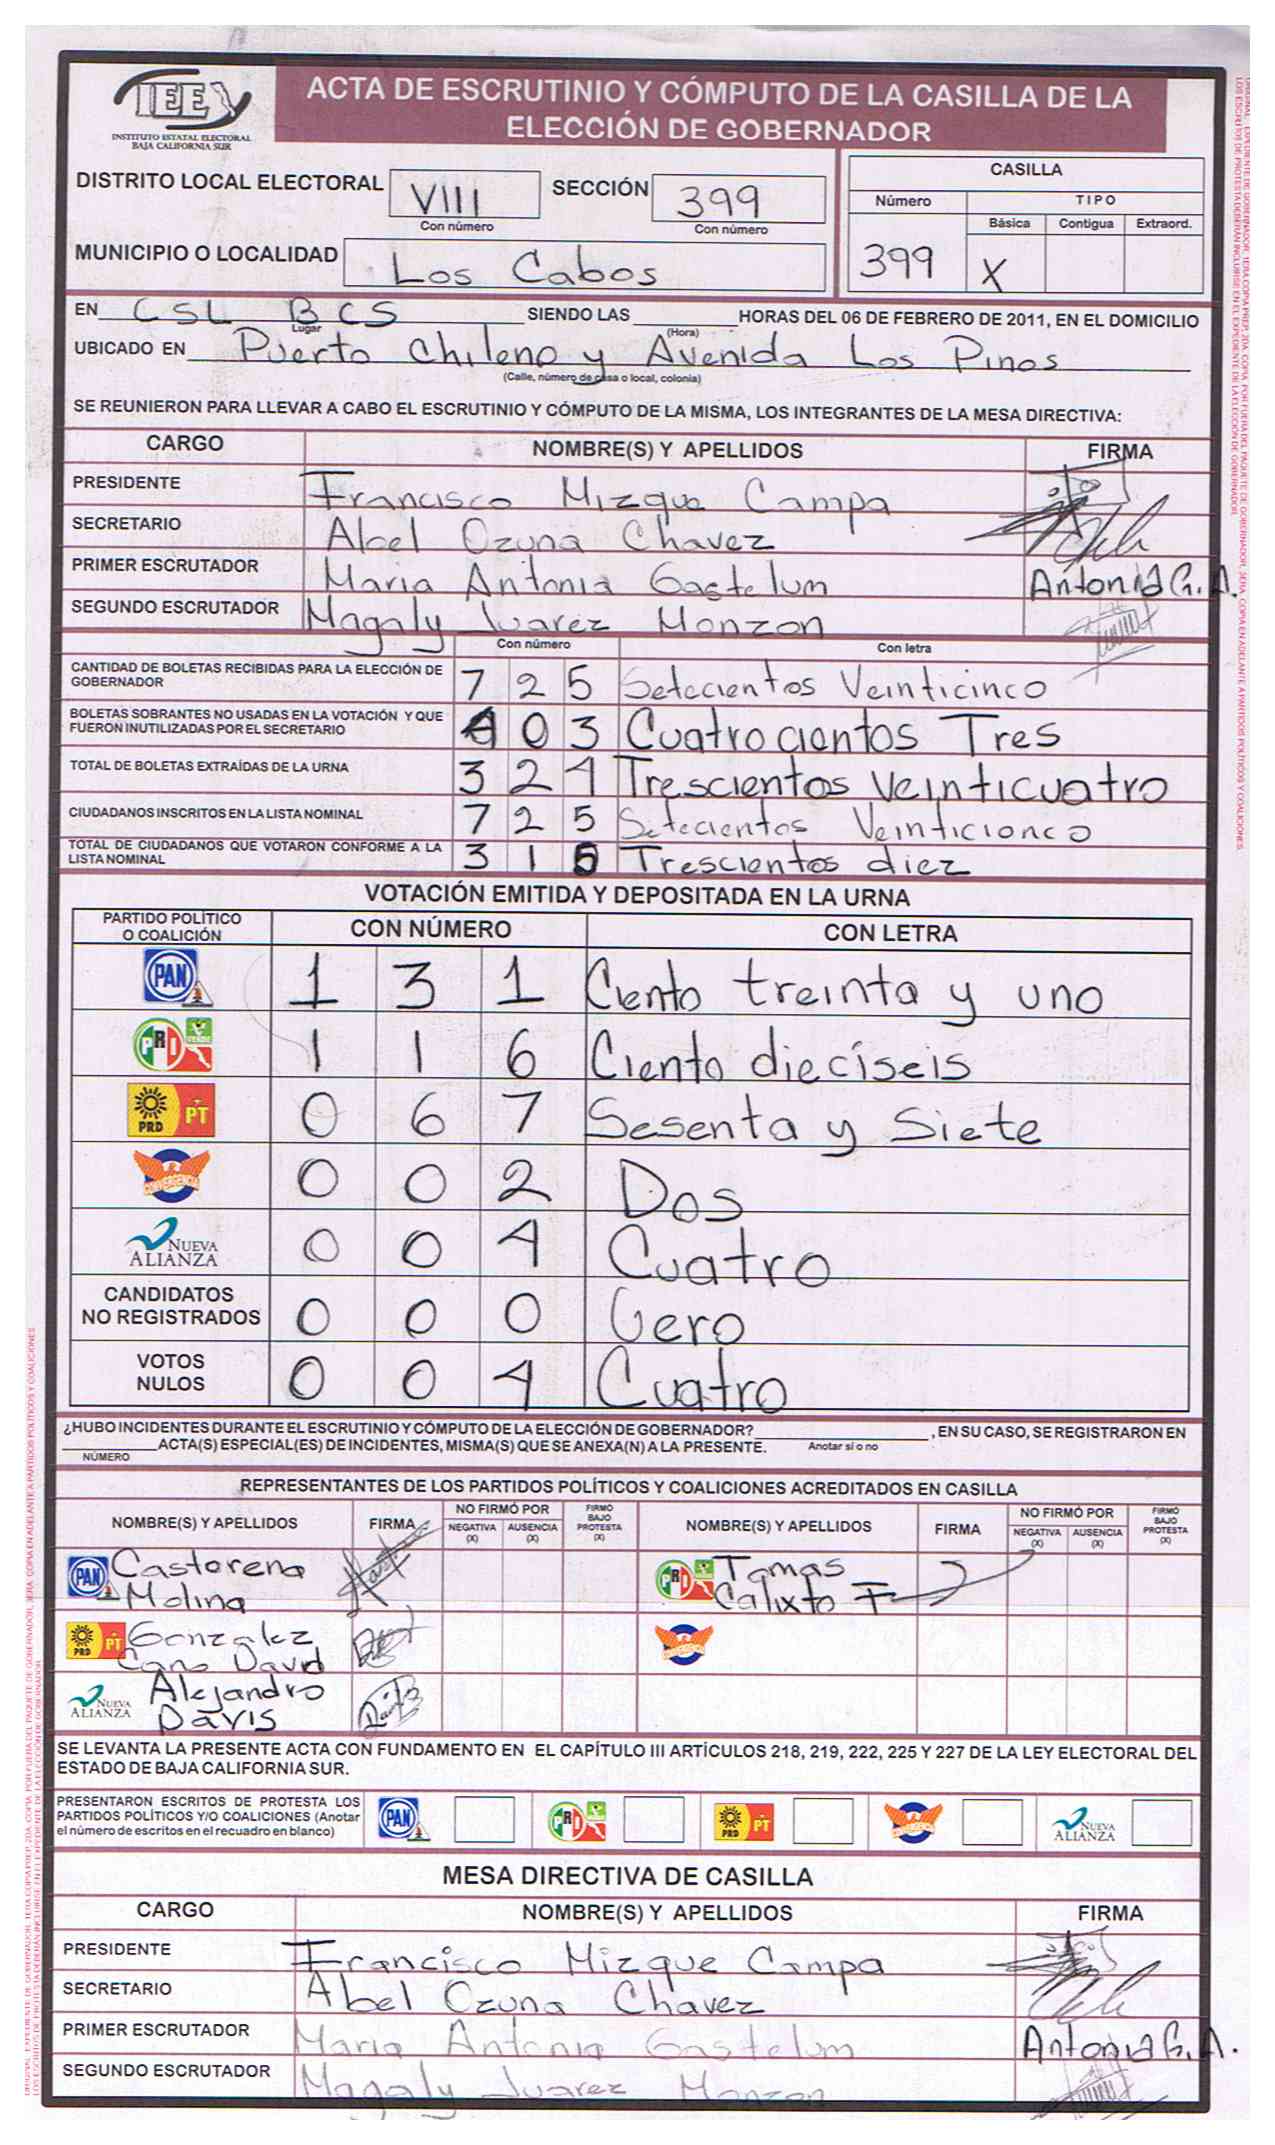 IEE
INSTITUTO ESTATAL ELECTORAL
BAJA CALIFORNIA SUR
ACTA DE ESCRUTINIO Y CÓMPUTO DE LA CASILLA DE LA
ELECCIÓN DE GOBERNADOR
DISTRITO LOCAL ELECTORAL VIII SECCIÓN 399
Con número Con número
MUNICIPIO O LOCALIDAD Los Cabos
CASILLA
Número TIPO
Básica Contigua Extraord.
399 X
EN CSL BCS SIENDO LAS HORAS DEL 06 DE FEBRERO DE 2011, EN EL DOMICILIO
Lugar (Hora)
UBICADO EN Puerto Chileno y Avenida Los Pinos
(Calle, número de casa o local, colonia)
SE REUNIERON PARA LLEVAR A CABO EL ESCRUTINIO Y CÓMPUTO DE LA MISMA, LOS INTEGRANTES DE LA MESA DIRECTIVA:
CARGO NOMBRE(S) Y APELLIDOS FIRMA
PRESIDENTE Francisco Mizque Campa
SECRETARIO Abel Ozuna Chavez
PRIMER ESCRUTADOR Maria Antonia Gastelum Antonia G. A.
SEGUNDO ESCRUTADOR Magaly Juarez Monzon
Con número Con letra
CANTIDAD DE BOLETAS RECIBIDAS PARA LA ELECCIÓN DE
GOBERNADOR 7 2 5 Setecientos Veinticinco
BOLETAS SOBRANTES NO USADAS EN LA VOTACIÓN Y QUE
FUERON INUTILIZADAS POR EL SECRETARIO 4 0 3 Cuatrocientos Tres
TOTAL DE BOLETAS EXTRAÍDAS DE LA URNA 3 2 4 Trescientos Veinticuatro
CIUDADANOS INSCRITOS EN LA LISTA NOMINAL 7 2 5 Setecientos Veinticionco
TOTAL DE CIUDADANOS QUE VOTARON CONFORME A LA
LISTA NOMINAL 3 1 Trescientos diez
VOTACIÓN EMITIDA Y DEPOSITADA EN LA URNA
PARTIDO POLÍTICO
O COALICIÓN CON NÚMERO CON LETRA
PAN 1 3 1 Ciento treinta y uno
PRI VERDE 1 1 6 Ciento dieciseis
PRD PT 0 6 7 Sesenta y Siete
CONVERGENCIA 0 0 2 Dos
NUEVA
ALIANZA 0 0 4 Cuatro
CANDIDATOS
NO REGISTRADOS 0 0 0 Cero
VOTOS
NULOS 0 0 4 Cuatro
¿HUBO INCIDENTES DURANTE EL ESCRUTINIO Y CÓMPUTO DE LA ELECCIÓN DE GOBERNADOR? , EN SU CASO, SE REGISTRARON EN
ACTA(S) ESPECIAL(ES) DE INCIDENTES, MISMA(S) QUE SE ANEXA(N) A LA PRESENTE. Anotar sí o no
NÚMERO
REPRESENTANTES DE LOS PARTIDOS POLÍTICOS Y COALICIONES ACREDITADOS EN CASILLA
NOMBRE(S) Y APELLIDOS FIRMA NO FIRMÓ POR NEGATIVA (X) AUSENCIA (X) FIRMÓ BAJO PROTESTA (X) NOMBRE(S) Y APELLIDOS FIRMA NO FIRMÓ POR NEGATIVA (X) AUSENCIA (X) FIRMÓ BAJO PROTESTA (X)
PAN Castoreno Molina PRI Tomas Calixto F
PRD PT Gonzalez Cano David CONVERGENCIA
NUEVA ALIANZA Alejandro Davis
SE LEVANTA LA PRESENTE ACTA CON FUNDAMENTO EN EL CAPÍTULO III ARTÍCULOS 218, 219, 222, 225 Y 227 DE LA LEY ELECTORAL DEL
ESTADO DE BAJA CALIFORNIA SUR.
PRESENTARON ESCRITOS DE PROTESTA LOS
PARTIDOS POLÍTICOS Y/O COALICIONES (Anotar
el número de escritos en el recuadro en blanco) PAN PRI PRD PT CONVERGENCIA NUEVA ALIANZA
MESA DIRECTIVA DE CASILLA
CARGO NOMBRE(S) Y APELLIDOS FIRMA
PRESIDENTE Francisco Mizque Campa
SECRETARIO Abel Ozuna Chavez
PRIMER ESCRUTADOR Maria Antonia Gastelum Antonia G. A.
SEGUNDO ESCRUTADOR Magaly Juarez Monzon